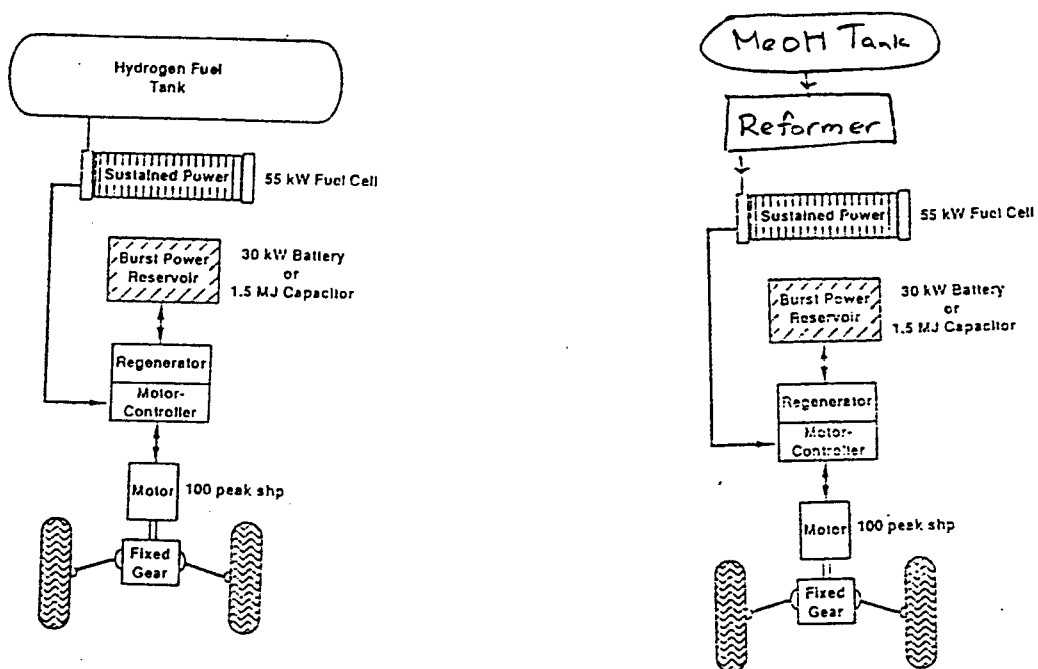 Hydrogen Fuel
Tank
Sustained Power
55 kW Fuel Cell
Burst Power
Reservoir
30 kW Battery
or
1.5 MJ Capacitor
Regenerator
Motor-
Controller
Motor
100 peak shp
Fixed
Gear
MeOH Tank
Reformer
Sustained Power
55 kW Fuel Cell
Burst Power
Reservoir
30 kW Battery
or
1.5 MJ Capacitor
Regenerator
Motor-
Controller
Motor
100 peak shp
Fixed
Gear